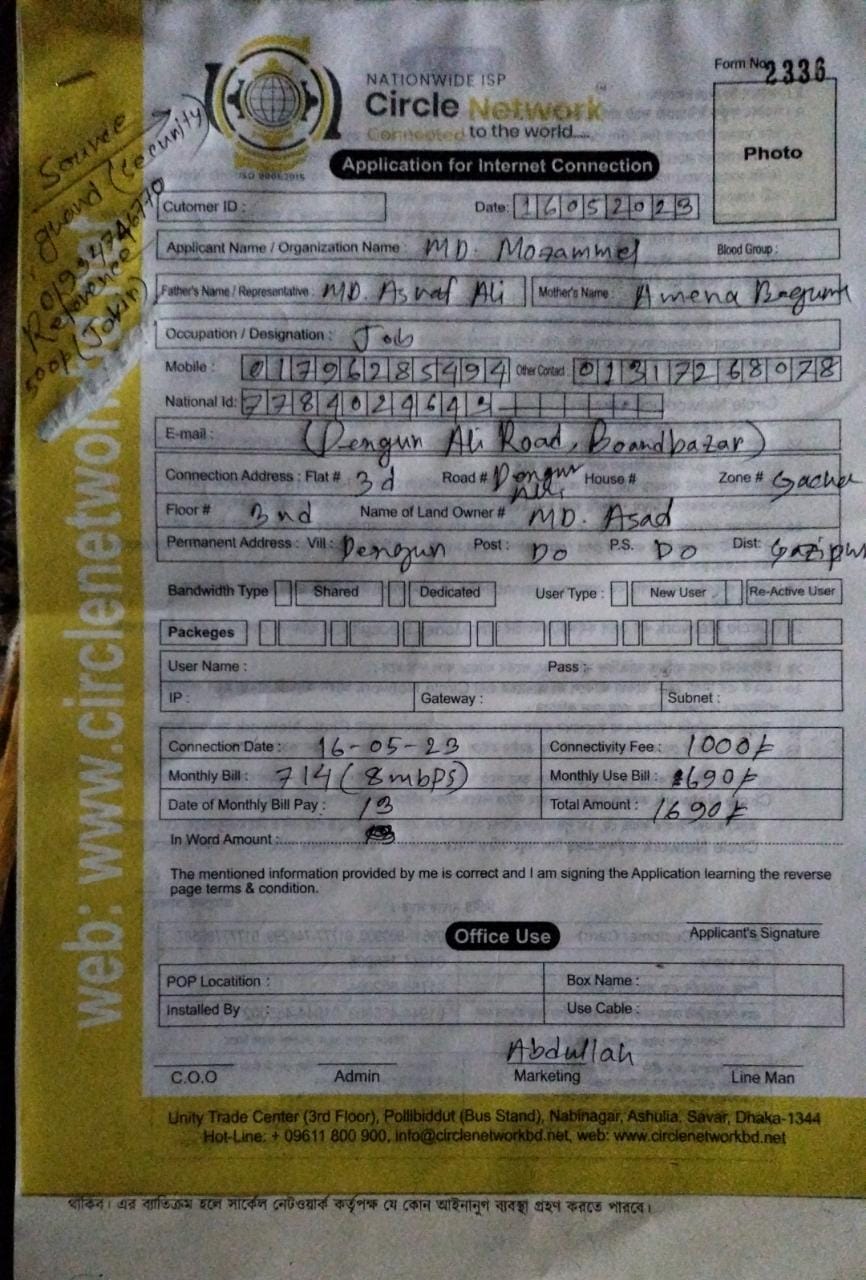 Form No 2336
NATIONWIDE ISP
Circle Network
Connected to the world....
ISO 9001:2015
Application for Internet Connection
Photo
Source
guard (security)
01934746770
Reference
500/ (Jakir)
web: www.circlenetwor
Cutomer ID :
Date: 16052023
Applicant Name / Organization Name : MD. Mozammel Blood Group :
Father's Name / Representative : MD. Asraf Ali Mother's Name : Amena Begum
Occupation / Designation : Job
Mobile : 01796285494 Other Contact : 01317268078
National Id: 7784024643
E-mail : (Dengun Ali Road, Boardbazar)
Connection Address : Flat # 3d Road # Dengun Ali House # Zone # Gacha
Floor # 3nd Name of Land Owner # MD. Asad
Permanent Address : Vill : Dengun Post : DO P.S. DO Dist: Gazipur
Bandwidth Type Shared Dedicated User Type : New User Re-Active User
Packeges
User Name : Pass :
IP : Gateway : Subnet :
Connection Date : 16-05-23 Connectivity Fee : 1000/=
Monthly Bill : 714 (8mbps) Monthly Use Bill : 690/=
Date of Monthly Bill Pay : 13 Total Amount : 1690/=
In Word Amount :
The mentioned information provided by me is correct and I am signing the Application learning the reverse
page terms & condition.
Applicant's Signature
Office Use
POP Locatition : Box Name :
Installed By : Use Cable :
Abdullah
C.O.O Admin Marketing Line Man
Unity Trade Center (3rd Floor), Pollibiddut (Bus Stand), Nabinagar, Ashulia, Savar, Dhaka-1344
Hot-Line: + 09611 800 900, info@circlenetworkbd.net, web: www.circlenetworkbd.net
থাকিব। এর ব্যতিক্রম হলে সার্কেল নেটওয়ার্ক কর্তৃপক্ষ যে কোন আইনানুগ ব্যবস্থা গ্রহণ করতে পারবে।